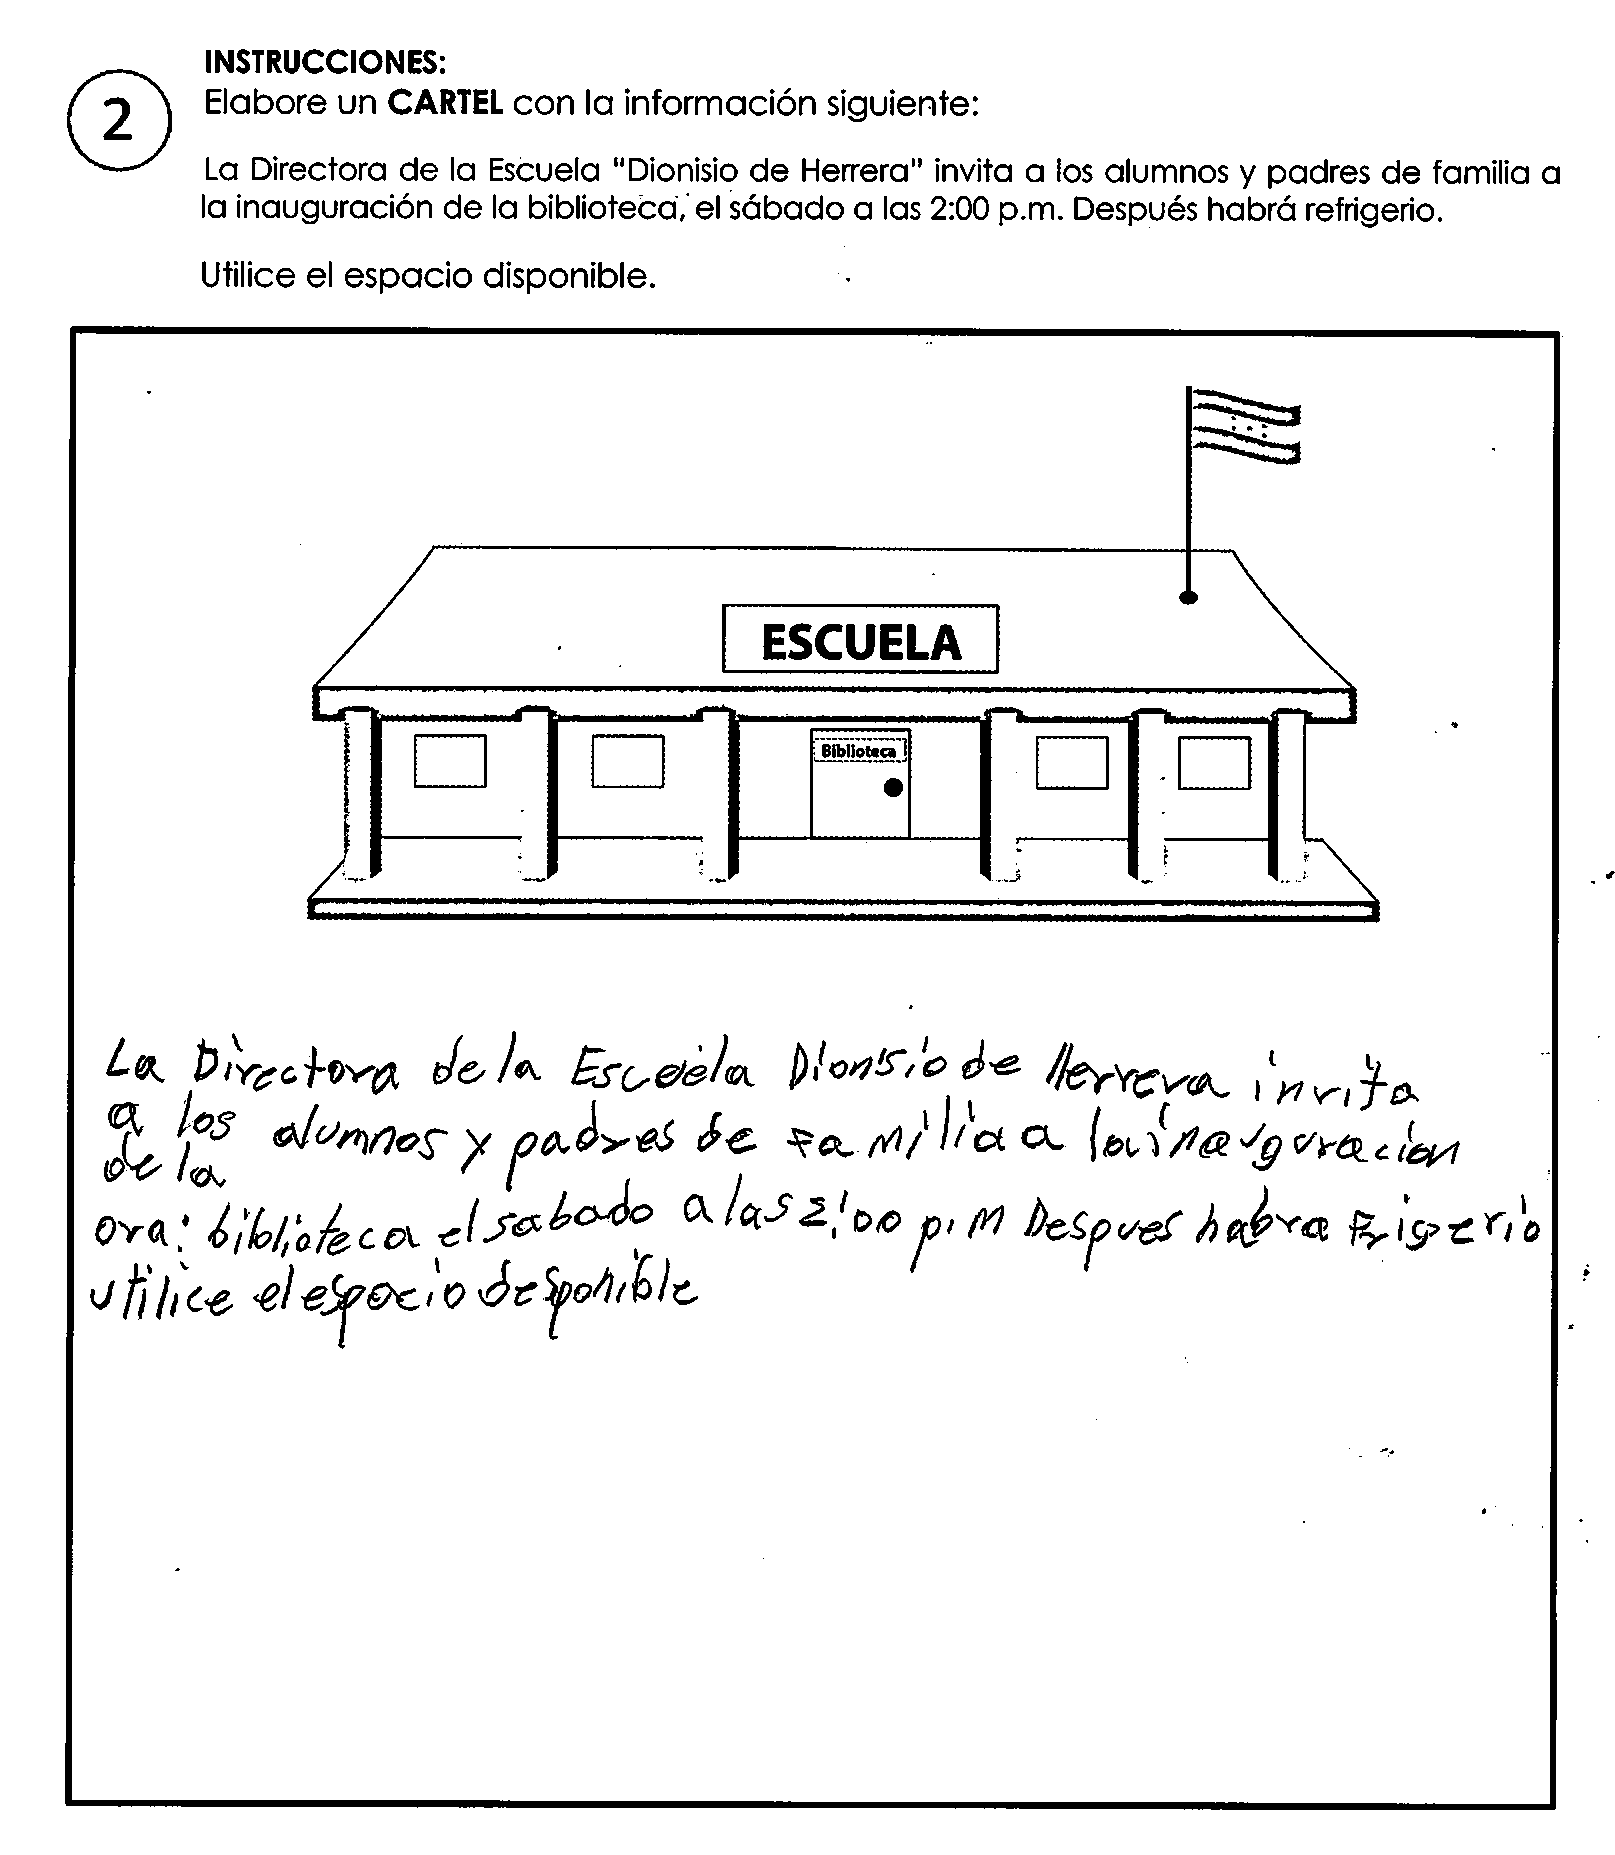 INSTRUCCIONES:
2
Elabore un CARTEL con la información siguiente:
La Directora de la Escuela "Dionisio de Herrera" invita a los alumnos y padres de familia a
la inauguración de la biblioteca, el sábado a las 2:00 p.m. Después habrá refrigerio.
Utilice el espacio disponible.
ESCUELA
Biblioteca
La Directora de la Escuela Dionsio de Herrera invita
a los alumnos y padres de familia a la inauguracion
de la
ora: biblioteca el sabado a las 2:00 p.M Despues habra Frigerio
utilice el espacio desponible